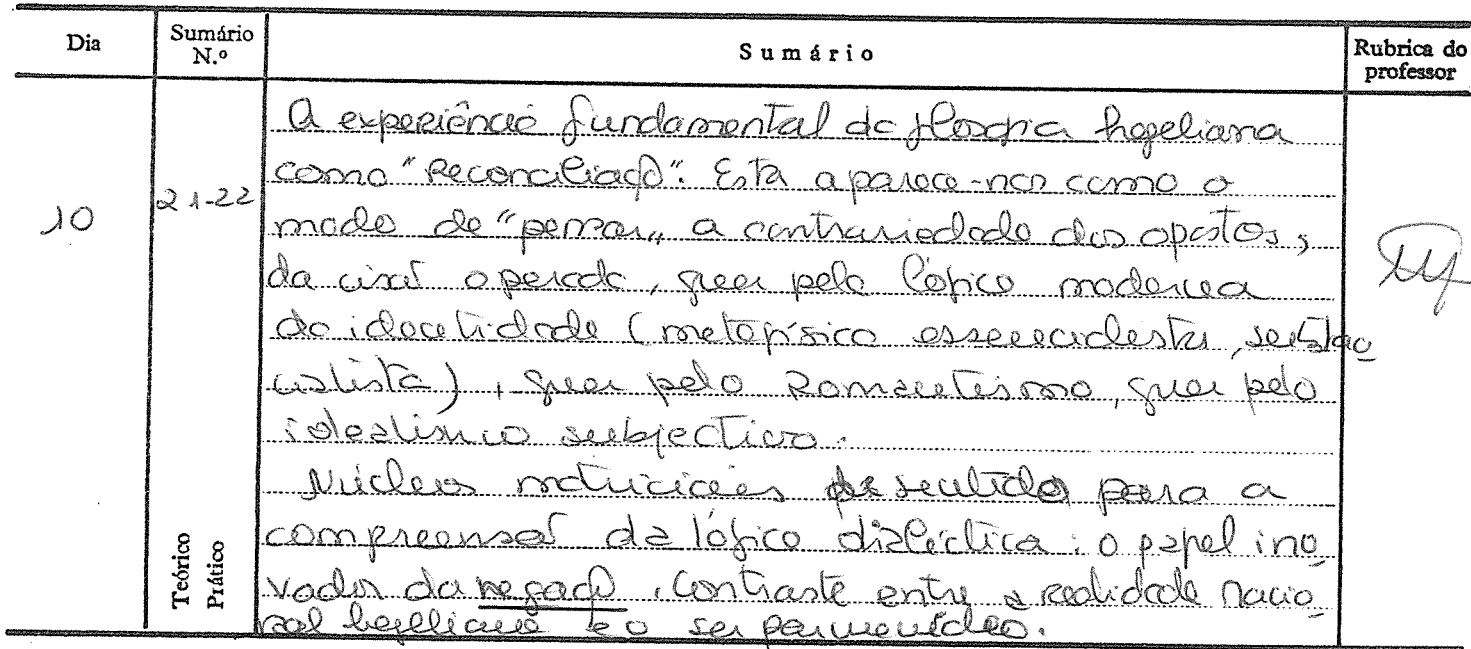 Dia
Sumário N.º
Sumário
Rubrica do professor
10
21-22
A experiência fundamental da filosofia hegeliana
como "Reconciliação". Esta aparece-nos como o
modo de "pensar" a contrariedade dos opostos,
da cisão operada, quer pela lógica moderna
da identidade (metafísica essencialista,
), quer pelo Romantismo, quer pelo
idealismo subjectivo.
Núcleos matriciais de sentido para a
compreensão da lógica dialéctica: o papel ino
vador da negação. Contraste entre a realidade racio
nal hegeliana e o ser parmenídeo.
Teórico
Prático